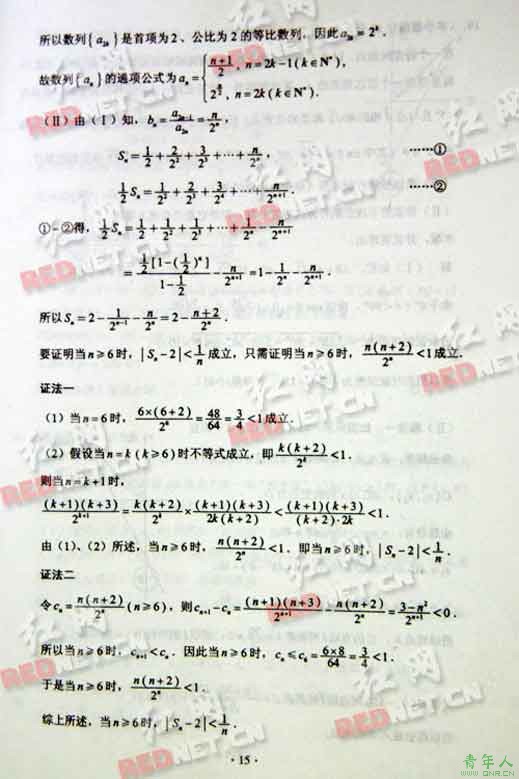 所以数列{a₂ₖ}是首项为2、公比为2的等比数列,因此a₂ₖ=2ᵏ.
故数列{aₙ}的通项公式为aₙ={(n+1)/2, n=2k-1(k∈N*), 2^(n/2), n=2k(k∈N*).
(Ⅱ)由(Ⅰ)知, bₙ=a₂ₙ₋₁/a₂ₙ=n/2ⁿ,
Sₙ=1/2+2/2²+3/2³+⋯+n/2ⁿ, ……①
1/2Sₙ=1/2²+2/2³+3/2⁴+⋯+n/2ⁿ⁺¹. ……②
①-②得, 1/2Sₙ=1/2+1/2²+1/2³+⋯+1/2ⁿ-n/2ⁿ⁺¹
=(1/2[1-(1/2)ⁿ])/(1-1/2)-n/2ⁿ⁺¹=1-1/2ⁿ-n/2ⁿ⁺¹.
所以Sₙ=2-1/2ⁿ⁻¹-n/2ⁿ=2-(n+2)/2ⁿ.
要证明当n≥6时,|Sₙ-2|<1/n成立,只需证明当n≥6时, n(n+2)/2ⁿ<1成立.
证法一
(1)当n=6时, 6×(6+2)/2⁶=48/64=3/4<1成立.
(2)假设当n=k(k≥6)时不等式成立,即k(k+2)/2ᵏ<1.
则当n=k+1时,
(k+1)(k+3)/2ᵏ⁺¹=k(k+2)/2ᵏ×(k+1)(k+3)/2k(k+2)<(k+1)(k+3)/(k+2)·2k<1.
由(1)、(2)所述,当n≥6时, n(n+2)/2ⁿ<1. 即当n≥6时, |Sₙ-2|<1/n.
证法二
令cₙ=n(n+2)/2ⁿ(n≥6),则cₙ₊₁-cₙ=(n+1)(n+3)/2ⁿ⁺¹-n(n+2)/2ⁿ=(3-n²)/2ⁿ⁺¹<0.
所以当n≥6时, cₙ₊₁<cₙ. 因此当n≥6时, cₙ≤c₆=6×8/64=3/4<1.
于是当n≥6时, n(n+2)/2ⁿ<1.
综上所述,当n≥6时, |Sₙ-2|<1/n.
·15·
红网
REDNET.CN
青年人
WWW.QNR.CN